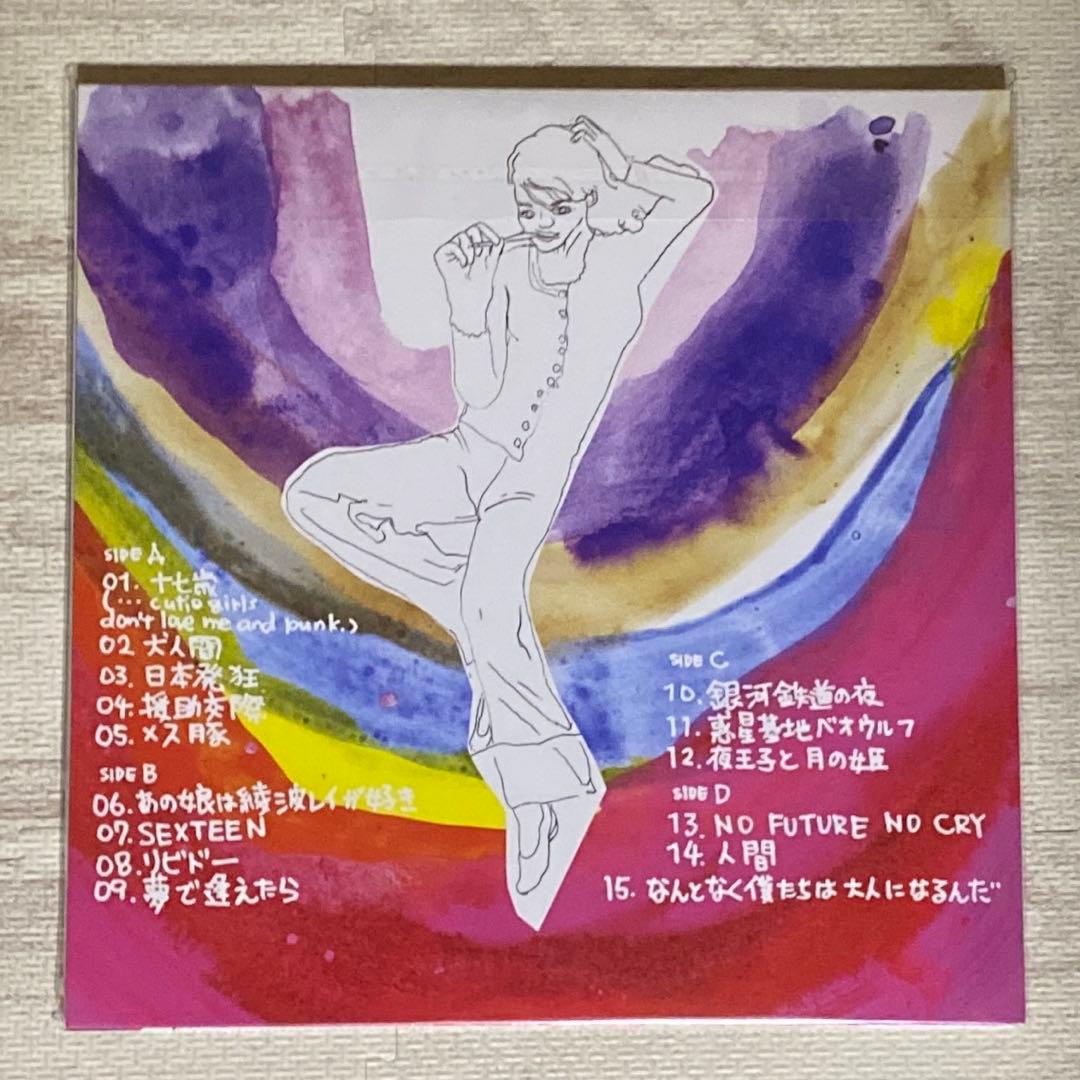 SIDE A
01. 十七歳
(… cutie girls
don't love me and punk.)
02 犬人間
03. 日本発狂
04. 援助交際
05. メス豚
SIDE B
06. あの娘は綾波レイが好き
07. SEXTEEN
08. リビドー
09. 夢で逢えたら
SIDE C
10. 銀河鉄道の夜
11. 惑星基地ベオウルフ
12. 夜王子と月の姫
SIDE D
13. NO FUTURE NO CRY
14. 人間
15. なんとなく僕たちは大人になるんだ